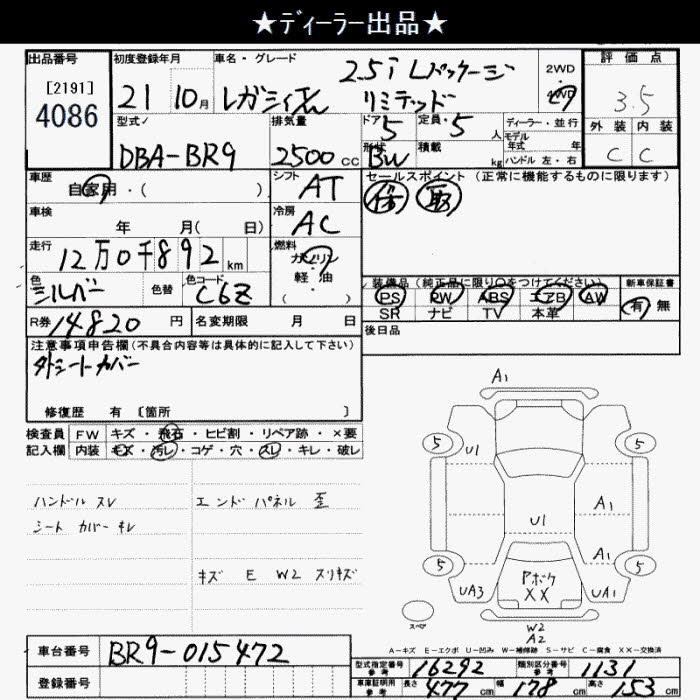 ★ディーラー出品★
出品番号 初度登録年月 車名・グレード 評価点
[2191] 4086
21 10月 レガシィ 2.5i Lパッケージ リミテッド
2WD 4WD
3.5
外装 内装
C C
型式 排気量 ドア 定員 ディーラー・並行
DBA-BR9 2500cc 5 5人
モデル年式 年
形状 積載 ハンドル 左・右
BW kg
車歴 自家用・( ) シフト AT
セールスポイント(正常に機能するものに限ります)
保 取
車検 年 月( 日) 冷房 AC
走行 12万0千892km 燃料 ガソリン・軽油・( )
色 シルバー 色替 色コード C6Z
装備品(純正品に限り〇をつけてください) 新車保証書
PS PW ABS エアB AW 有 無
SR ナビ TV 本革
R券 14,820円 名変期限 月 日
後日品
注意事項申告欄(不具合内容等は具体的に記入して下さい)
シートカバー
修復歴 有 〔箇所 〕
検査員 FW キズ・飛石・ヒビ割・リペア跡・×要
記入欄 内装 キズ・汚レ・コゲ・穴・スレ・キレ・破レ
ハンドル スレ エンド パネル 歪
シート カバー キレ
キズ E W2 スリキズ
A1
5 U1 5
A1
U1
A1
5 5
UA3 Pボケ XX UA1
スペア
W2
A2
A-キズ E-エクボ U-凹み W-補修跡 S-サビ C-腐食 XX-交換済
車台番号 BR9-015472
登録番号
型式指定番号 参考 16292 類別区分番号 参考 1131
車庫証明用 参考 長さ 477cm 幅 178cm 高さ 153cm